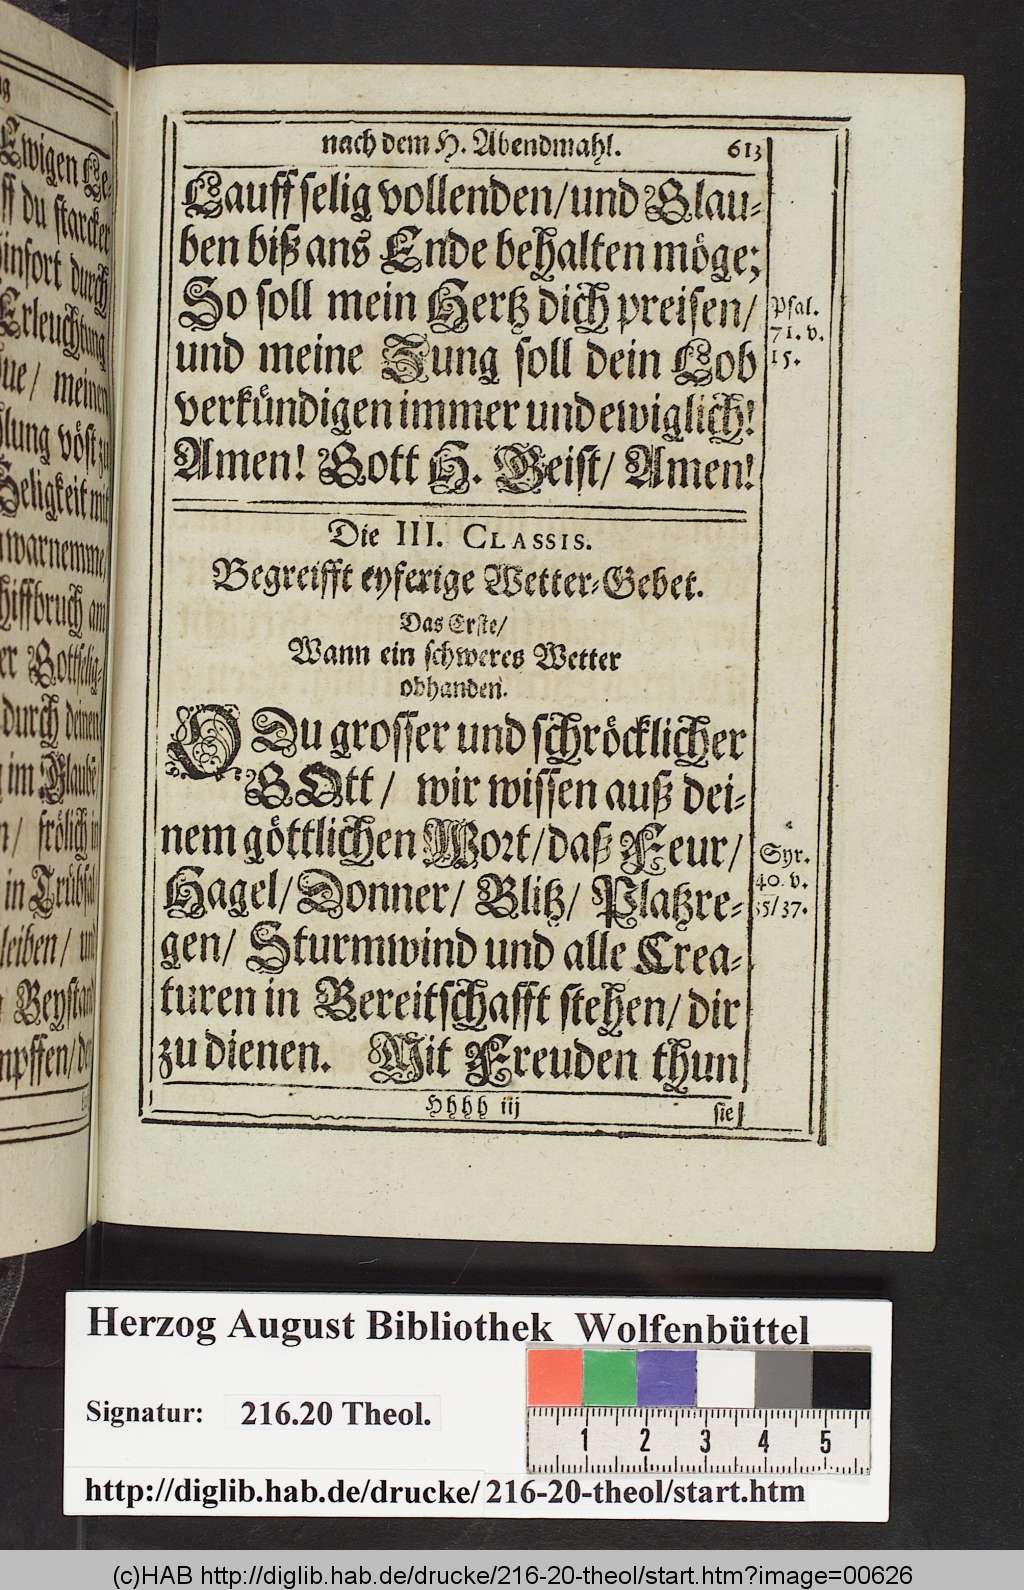 Ewigen Le-
ff du starcker
hinfort durch
Erleuchtung
meinen
lung vöst zu
Seligkeit mit
warnemme/
hiffbruch am
er Gottselig-
durch deinen
im Glaube/
n/ frölich in
in Trübsal
leiben/ und
Beystand
mpffen/ den
nach dem H. Abendmahl. 613
Lauff selig vollenden/und Glau-
ben biß ans Ende behalten möge;
So soll mein Hertz dich preisen/
und meine Zung soll dein Lob
verkündigen immer und ewiglich!
Amen! Gott H. Geist/ Amen!
Psal.
71. v.
15.
Die III. CLASSIS.
Begreifft eyferige Wetter-Gebet.
Das Erste/
Wann ein schweres Wetter
obhanden.
O Du grosser und schröcklicher
GOtt/ wir wissen auß dei-
nem göttlichen Wort/daß Feur/
Hagel/Donner/ Blitz/ Platzre-
gen/ Sturmwind und alle Crea-
turen in Bereitschafft stehen/ dir
zu dienen. Mit Freuden thun
Syr.
40. v.
35/37.
Hhhh iij
sie
Herzog August Bibliothek Wolfenbüttel
Signatur: 216.20 Theol.
1 2 3 4 5
http://diglib.hab.de/drucke/216-20-theol/start.htm
(c)HAB http://diglib.hab.de/drucke/216-20-theol/start.htm?image=00626